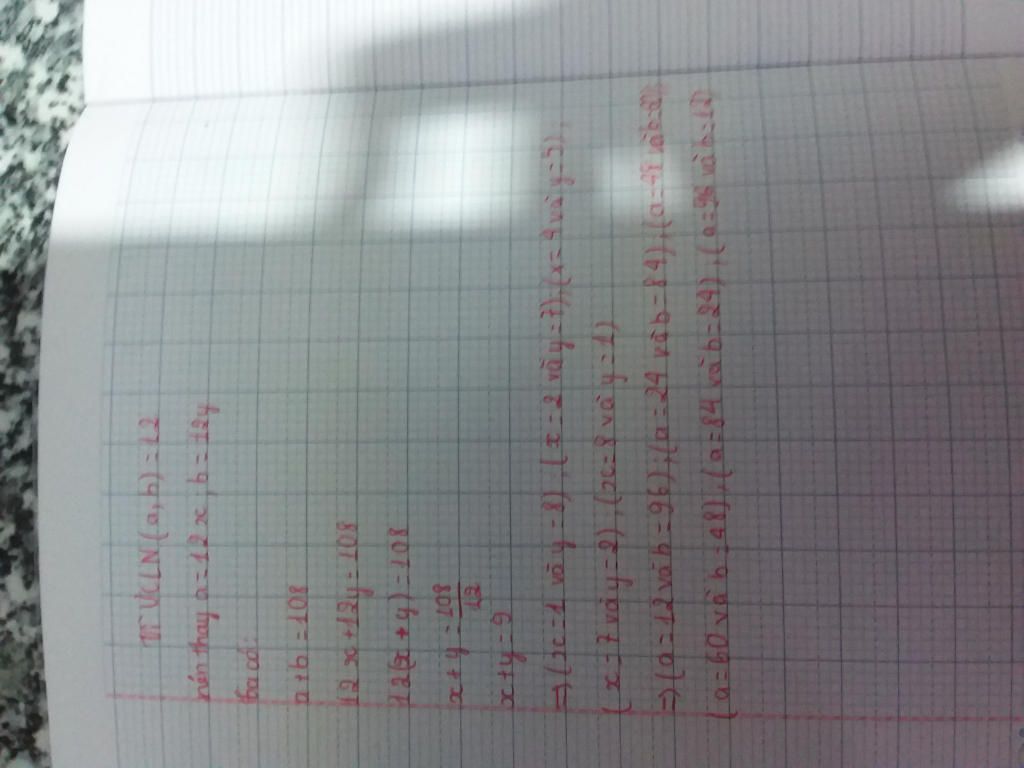 Vì ƯCLN (a, b) = 12
nên thay a = 12x, b = 12y
Ta có:
a + b = 108
12x + 12y = 108
12(x + y) = 108
x + y = 108/12
x + y = 9
=> (x = 1 và y = 8), (x = 2 và y = 7), (x = 4 và y = 5),
(x = 7 và y = 2), (x = 8 và y = 1)
=> (a = 12 và b = 96); (a = 24 và b = 84), (a = 48 và b = 60),
(a = 60 và b = 48), (a = 84 và b = 24), (a = 96 và b = 12)